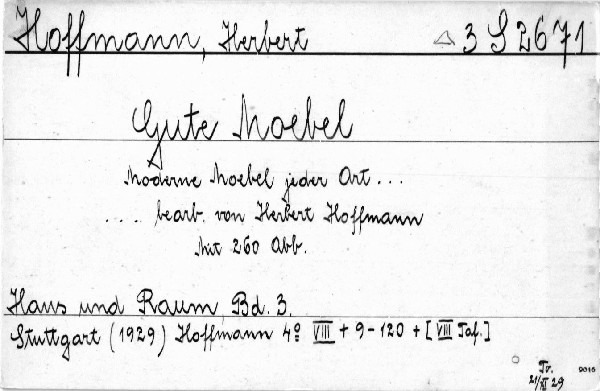 Hoffmann, Herbert △ 3 S 2671
Gute Moebel
Moderne Moebel jeder Art...
.... bearb. von Herbert Hoffmann
Mit 260 Abb.
Haus und Raum Bd. 3.
Stuttgart (1929) Hoffmann 4º VIII + 9-120 + [VIII Taf.]
Tr.
21/II 29